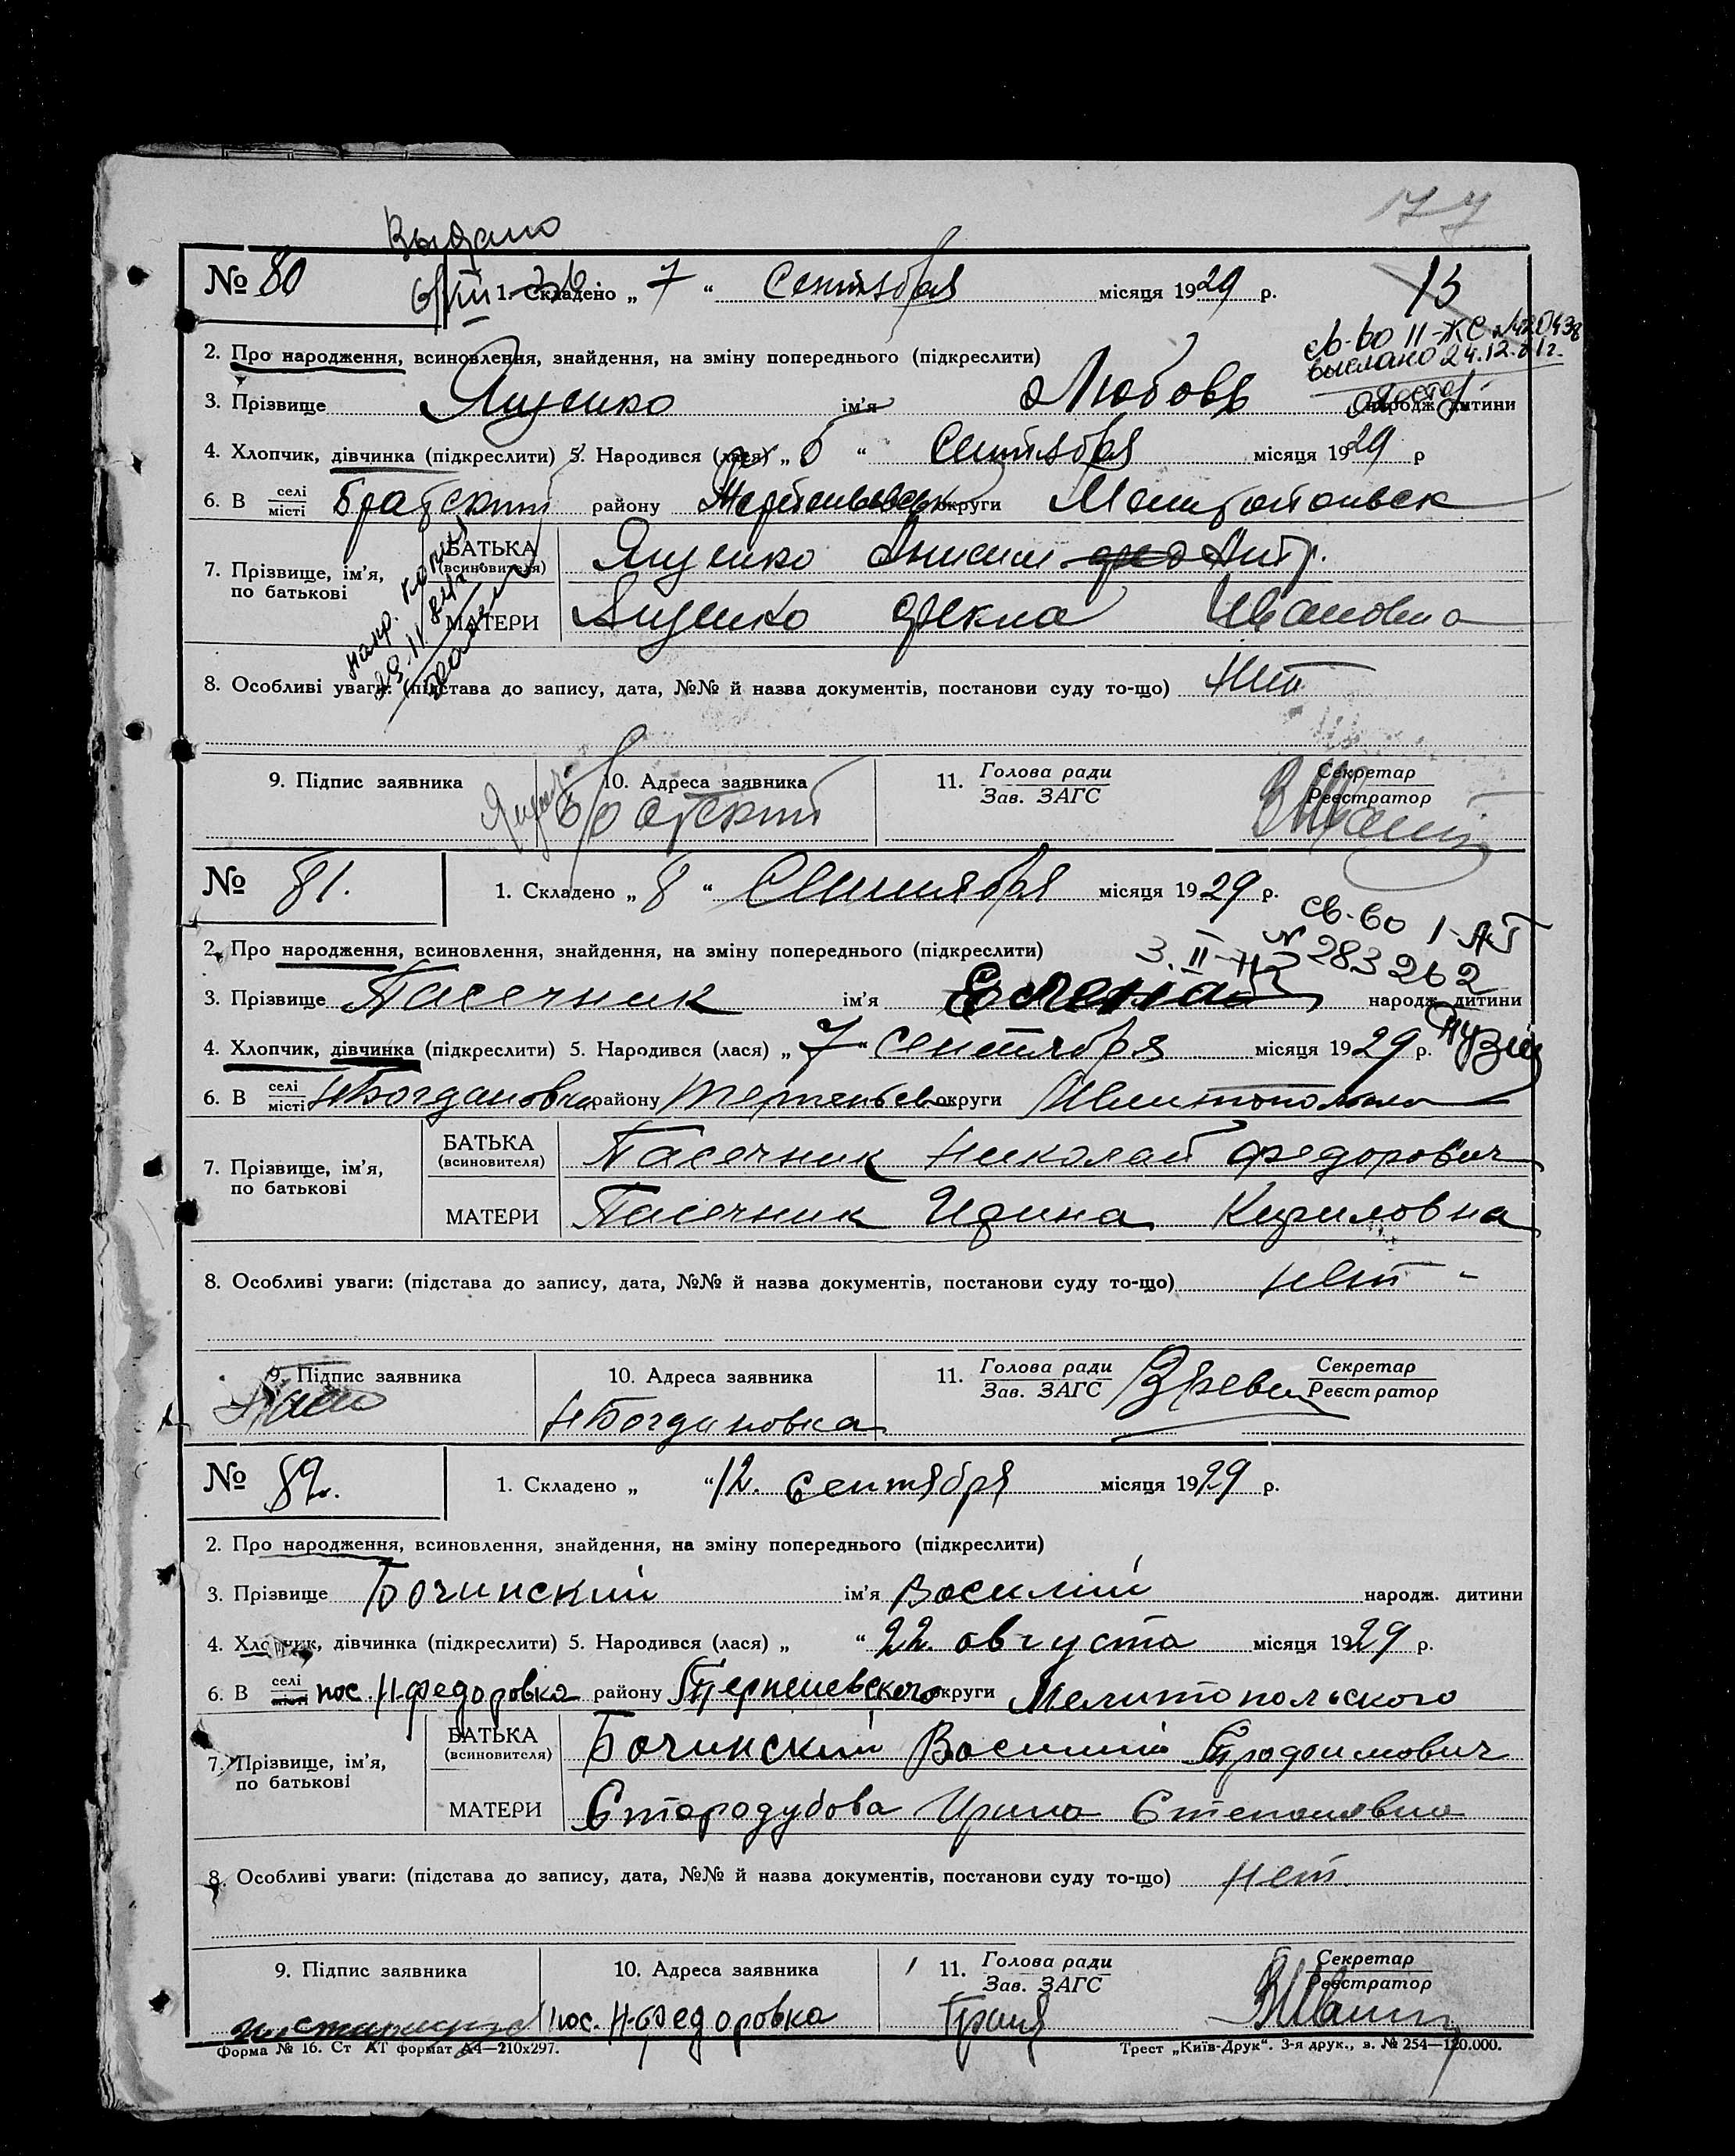 177
Выдано
№ 80
1. Складено „ 7 “ Сентября місяця 1929 р.
13
св-во II-ЖС №
выслано 24.12.81г.
2. Про народження, всиновлення, знайдення, на зміну попереднього (підкреслити)
3. Прізвище Ященко ім’я Любовь народж. дитини
4. Хлопчик, дівчинка (підкреслити) 5. Народився (лася) „ 6 “ Сентября місяця 1929 р
6. В селі місті Братский району округи
напр. копия
29.11.84г.
7. Прізвище, ім’я, по батькові
БАТЬКА (всиновителя) Ященко Анисим
МАТЕРИ Ященко Фекла Ивановна
8. Особливі уваги: (підстава до запису, дата, №№ й назва документів, постанови суду то-що) Нет
9. Підпис заявника 10. Адреса заявника 11. Голова ради Зав. ЗАГС Секретар Реєстратор
Братский
№ 81.
1. Складено „ 8 “ Сентября місяця 1929 р.
св-во I-АТ
№ 283262
2. Про народження, всиновлення, знайдення, на зміну попереднього (підкреслити)
3. Прізвище Пасечник ім’я Елена народж. дитини
4. Хлопчик, дівчинка (підкреслити) 5. Народився (лася) „ 7 “ сентября місяця 1929 р.
6. В селі місті Н Богдановка району округи
7. Прізвище, ім’я, по батькові
БАТЬКА (всиновителя) Пасечник Николай Федорович
МАТЕРИ Пасечник Ирина Кириловна
8. Особливі уваги: (підстава до запису, дата, №№ й назва документів, постанови суду то-що) Нет -
9. Підпис заявника 10. Адреса заявника 11. Голова ради Зав. ЗАГС Секретар Реєстратор
Н Богдановка
№ 82.
1. Складено „ “ 12. Сентября місяця 1929 р.
2. Про народження, всиновлення, знайдення, на зміну попереднього (підкреслити)
3. Прізвище Бочинский ім’я Василий народж. дитини
4. Хлопчик, дівчинка (підкреслити) 5. Народився (лася) „ “ 22. августа місяця 1929 р.
6. В селі місті пос. Н.Федоровка району Терпеневского округи Мелитопольского
7. Прізвище, ім’я, по батькові
БАТЬКА (всиновителя) Бочинский Василий Трофимович
МАТЕРИ Стародубова Ирина Степановна
8. Особливі уваги: (підстава до запису, дата, №№ й назва документів, постанови суду то-що) Нет.
9. Підпис заявника 10. Адреса заявника 11. Голова ради Зав. ЗАГС Секретар Реєстратор
пос. Н-Федоровка
Форма № 16. Ст АТ формат А4—210x297.
Трест „Київ-Друк“. 3-я друк., в. № 254—120.000.